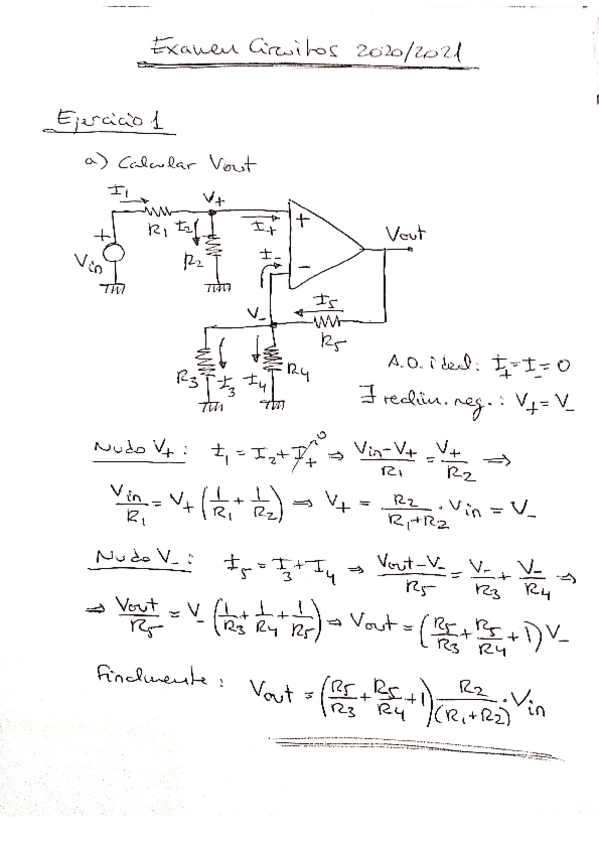 Examen Circuitos 2020/2021
Ejercicio 1
a) Calcular Vout
I1
V+
R1
I2
I+
+
Vout
+
Vin
R2
I-
-
V-
I5
R5
R3
I3
I4
R4
A.O. ideal: I+=I-=0
∃ realim. neg.: V+=V-
Nudo V+: I1 = I2 + I+ 0 ⇒ (Vin-V+)/R1 = V+/R2 ⇒
Vin/R1 = V+ (1/R1 + 1/R2) ⇒ V+ = R2/(R1+R2) · Vin = V-
Nudo V-: I5 = I3 + I4 ⇒ (Vout-V-)/R5 = V-/R3 + V-/R4 ⇒
⇒ Vout/R5 = V- (1/R3 + 1/R4 + 1/R5) ⇒ Vout = (R5/R3 + R5/R4 + 1) V-
Finalmente: Vout = (R5/R3 + R5/R4 + 1) R2/(R1+R2) · Vin